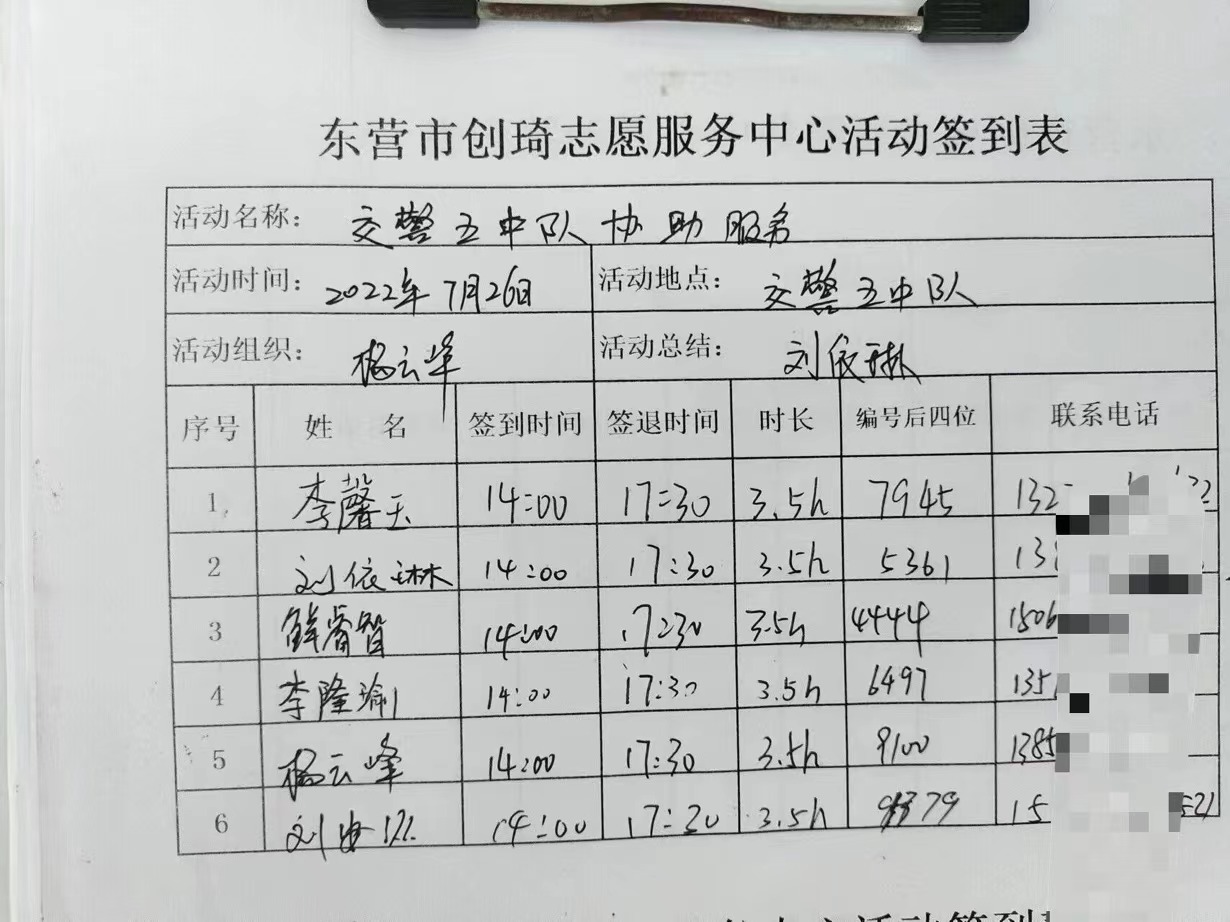 东营市创琦志愿服务中心活动签到表
活动名称: 交警五中队协助服务
活动时间: 2022年7月26日 活动地点: 交警五中队
活动组织: 杨云峰 活动总结: 刘依琳
序号 姓 名 签到时间 签退时间 时长 编号后四位 联系电话
1 李馨玉 14:00 17:30 3.5h 7945 132
2 刘依琳 14:00 17:30 3.5h 5361 13
3 睿智 14:00 17:30 3.5h 4444 1506
4 李隆瑜 14:00 17:30 3.5h 6497 135
5 杨云峰 14:00 17:30 3.5h 9100 1385
6 刘 14:00 17:30 3.5h 9379 15
活动签到